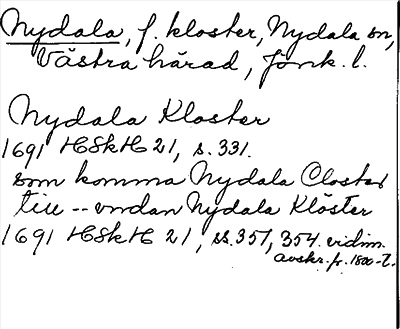 Nydala, f. kloster, Nydala sn,
Västra härad, Jönk. l.
Nydala Kloster
1691 HSkH 21, s. 331.
som komma Nydala Closter
till -- undan Nydala Klöster
1691 HSkH 21, ss. 351, 354. vidim.
avskr. fr. 1800-t.